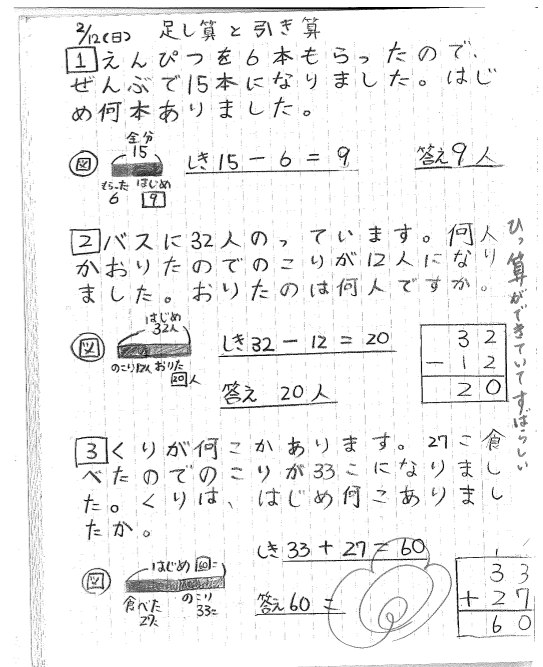 2/12(日) 足し算と引き算
1 えんぴつを6本もらったので、
ぜんぶで15本になりました。はじ
め何本ありました。
図 全分 15 もらった 6 はじめ 9
しき 15 － 6 ＝ 9
答え 9人
2 バスに32人のっています。何人
かおりたのでのこりが12人になり
ました。おりたのは何人ですか。
図 はじめ 32人 のこり12人 おりた 20人
しき 32 － 12 ＝ 20
答え 20人
32
－12
20
ひっ算ができていてすばらしい
3 くりが何こかあります。27こ食
べたのでのこりが33こになりまし
た。くりは、はじめ何こありまし
たか。
図 はじめ 60こ 食べた 27こ のこり 33こ
しき 33 ＋ 27 ＝ 60
答え 60こ
1
33
＋27
60